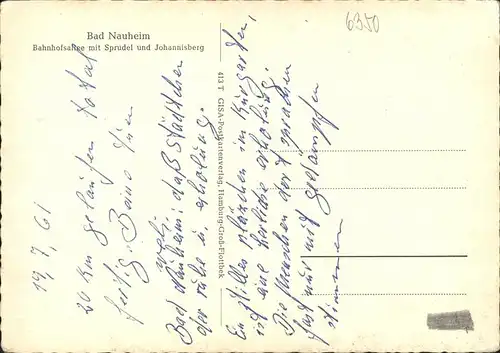 Bad Nauheim
Bahnhofsallee mit Sprudel und Johannisberg
6350
413 T GISA-Postkartenverlag, Hamburg-Groß-Flottbek
19.7.61
20 km gelaufen total
fertig. Beine tun
weh.
Bad Nauheim: das Städtchen
der ruhe u. erholung.
Ein stilles plätzchen im Kurgarten,
ist eine herliche erholung.
Die Menschen dort sprachen
fast nur mit gedämpften
stimmen